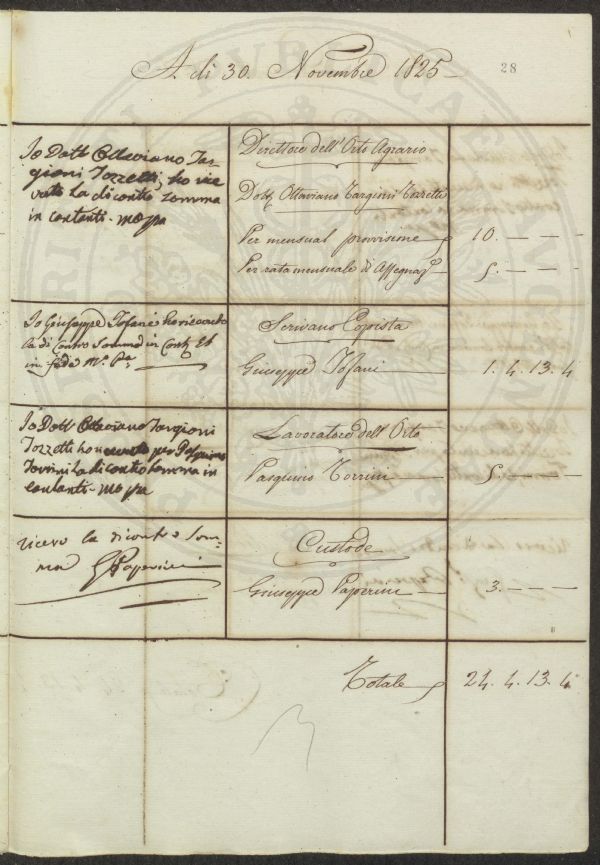 A dì 30. Novembre 1825
28
Io Dott. Ottaviano Tar-
gioni Tozzetti, ho rice
vuto la di contro somma
in contanti - mo pa
Direttore dell'Orto Agrario
Dott. Ottaviano Targioni Tozzetti
Per mensual provvisione 10. — — —
Per rata mensuale di Assegnaz.e 5. — — —
Io Giuseppe Tofani ho ricevuto
la di Contro Somma in Cont. Et
in fede M.o Pa
Scrivano Copista
Giuseppe Tofani 1. 4. 13. 4
Io Dott. Ottaviano Targioni
Tozzetti ho ricevuto per Pasquino
Torrini la di contro somma in
contanti - mo pa
Lavoratore dell'Orto
Pasquino Torrini 5. — — —
ricevo la di contro Som-
ma G Paperini
Custode
Giuseppe Paperini 3. — — —
Totale 24. 4. 13. 4